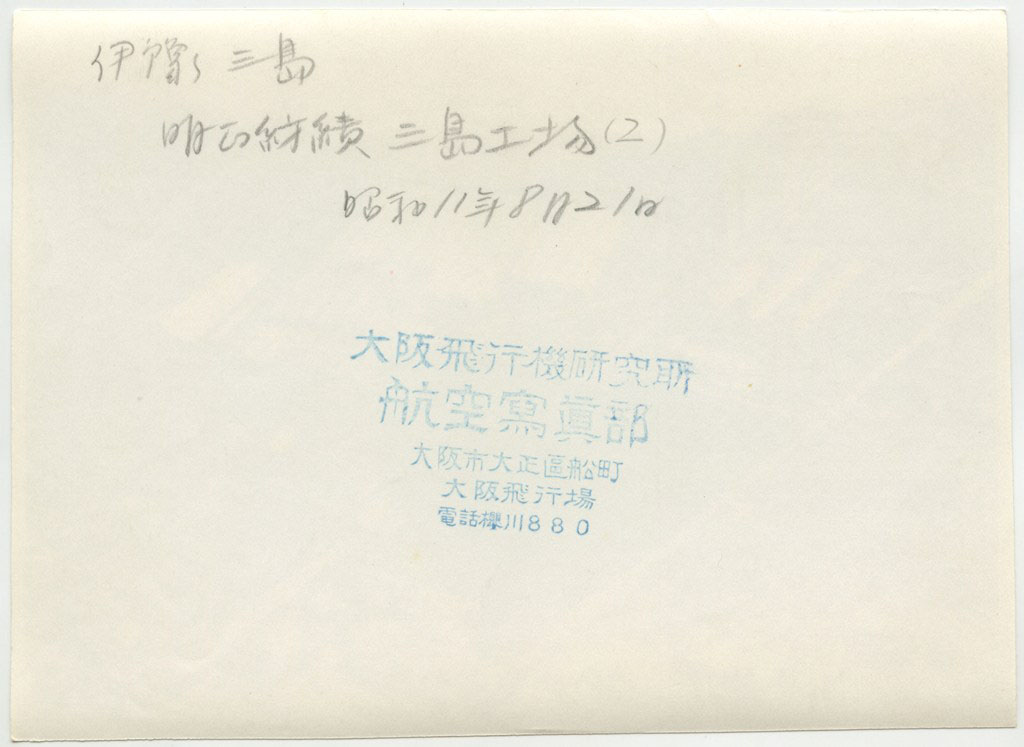 伊豫 三島
明正紡績 三島工場(2)
昭和11年8月21日
大阪飛行機研究所
航空寫眞部
大阪市大正區船町
大阪飛行場
電話櫻川880